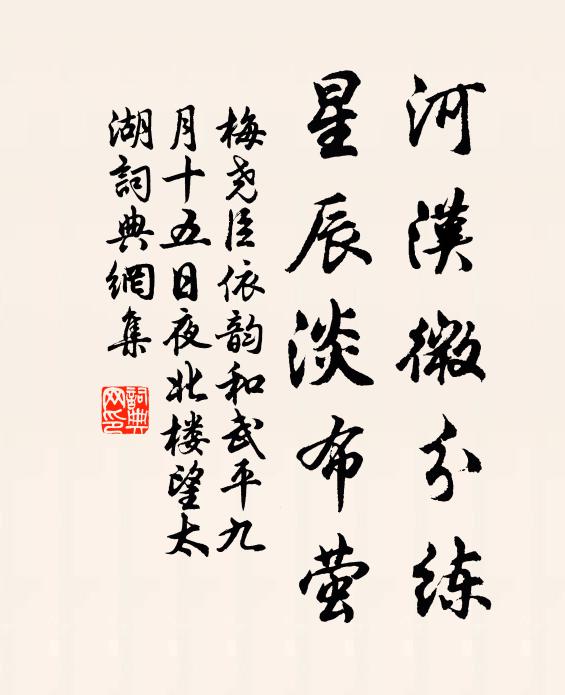 河漢微分练
星辰淡布萤
梅尧臣依韵和武平九
月十五日夜北楼望太
湖詞典網集
詞典
网印